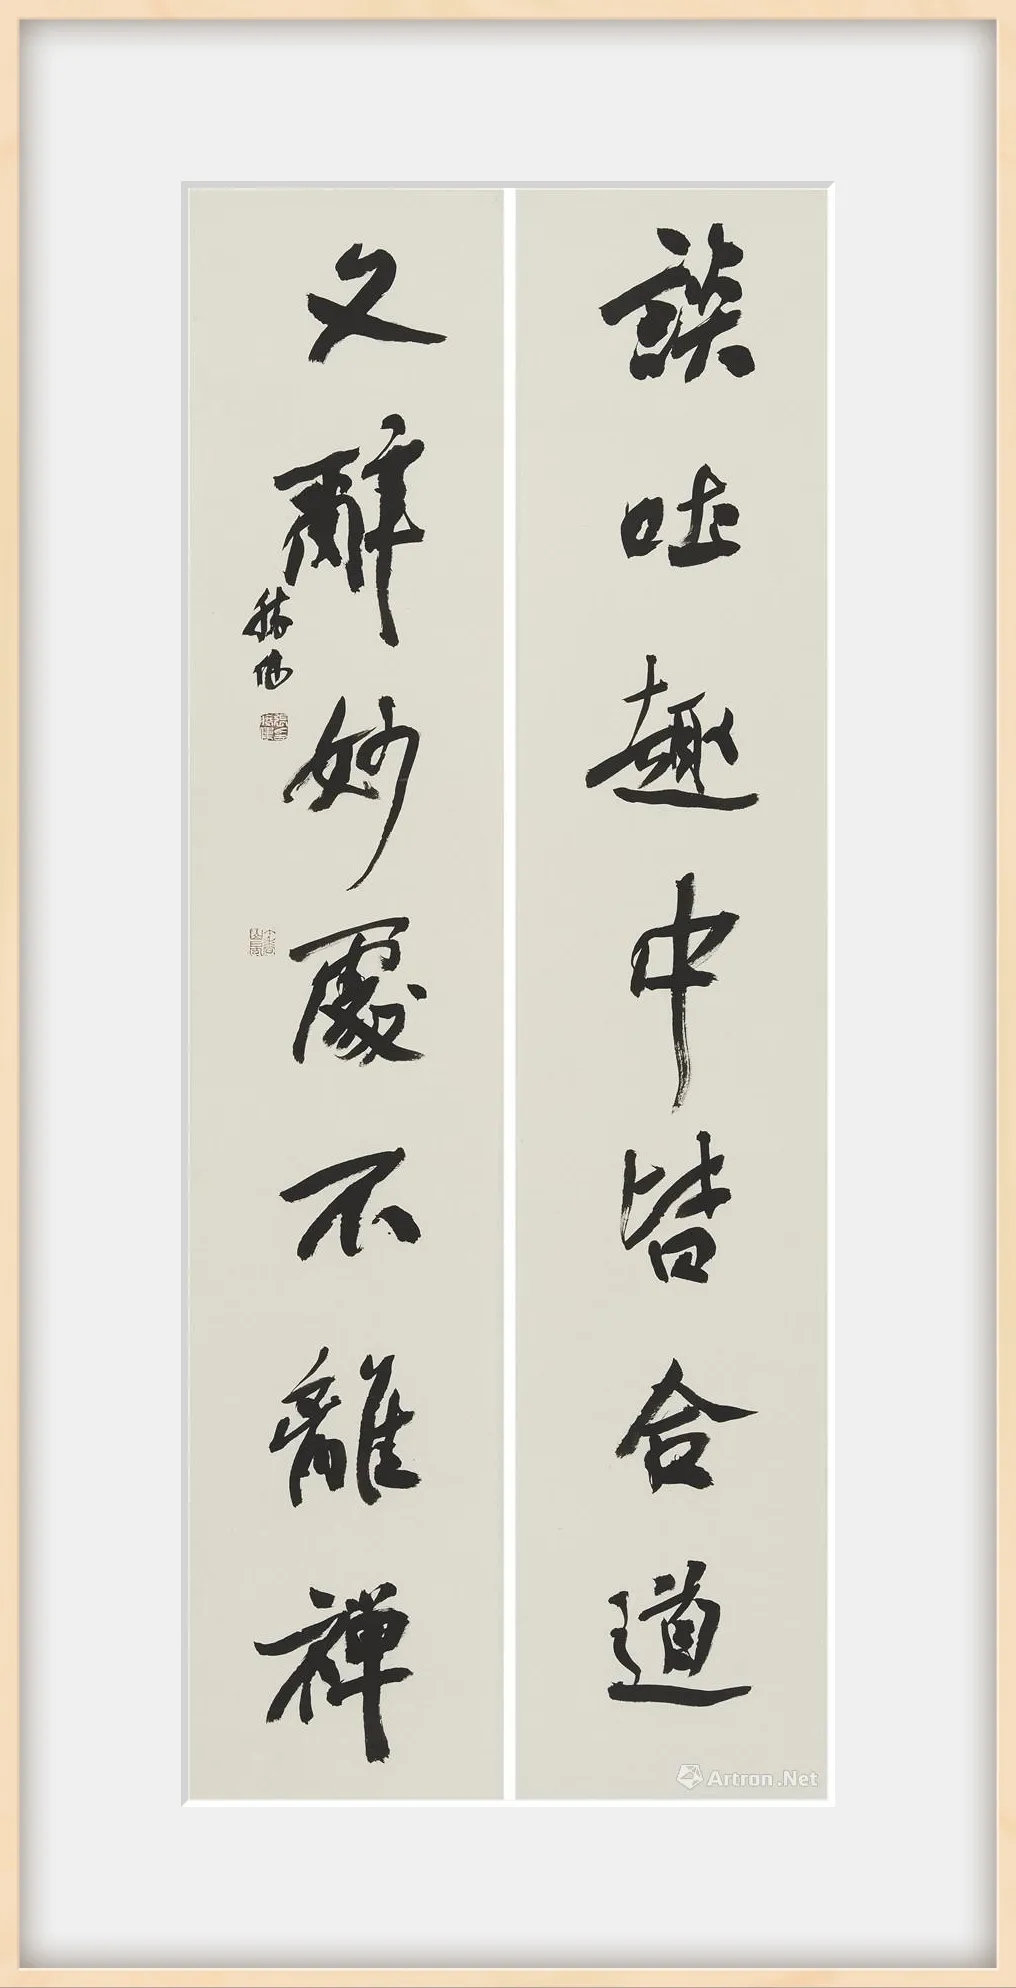 談吐趣中皆合道
文辭妙處不離禪
Artron.Net